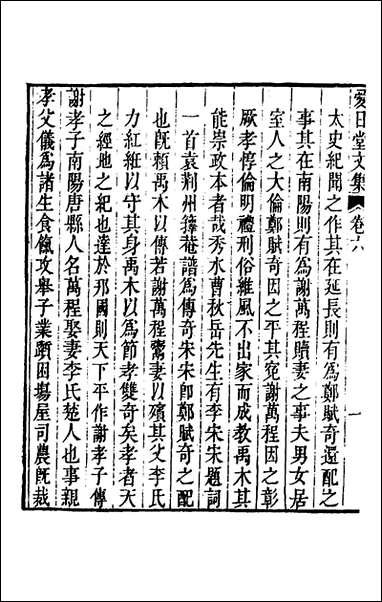 愛日堂文集 卷六 一
太史紀聞之作其在延長則有爲鄭賦奇還配之
事其在南陽則有爲謝萬程贖妻之事夫男女居
室人之大倫鄭賦奇因之平其寃謝萬程因之彰
厥孝惇倫明禮刑俗維風不出家而成教禹木其
能崇政本者哉秀水曹秋岳先生有李宋宋題詞
一首袁荆州籜菴譜爲傳奇宋宋卽鄭賦奇之配
也旣頼禹木以傳若謝萬程鬻妻以殯其父李氏
力紅紝以守其身禹木以爲節孝雙奇矣孝者天
之經地之紀也達於邦國則天下平作謝孝子傳
謝孝子南陽唐縣人名萬程娶妻李氏楚人也事親
孝父儀爲諸生食餼攻舉子業躓困塲屋司農旣裁